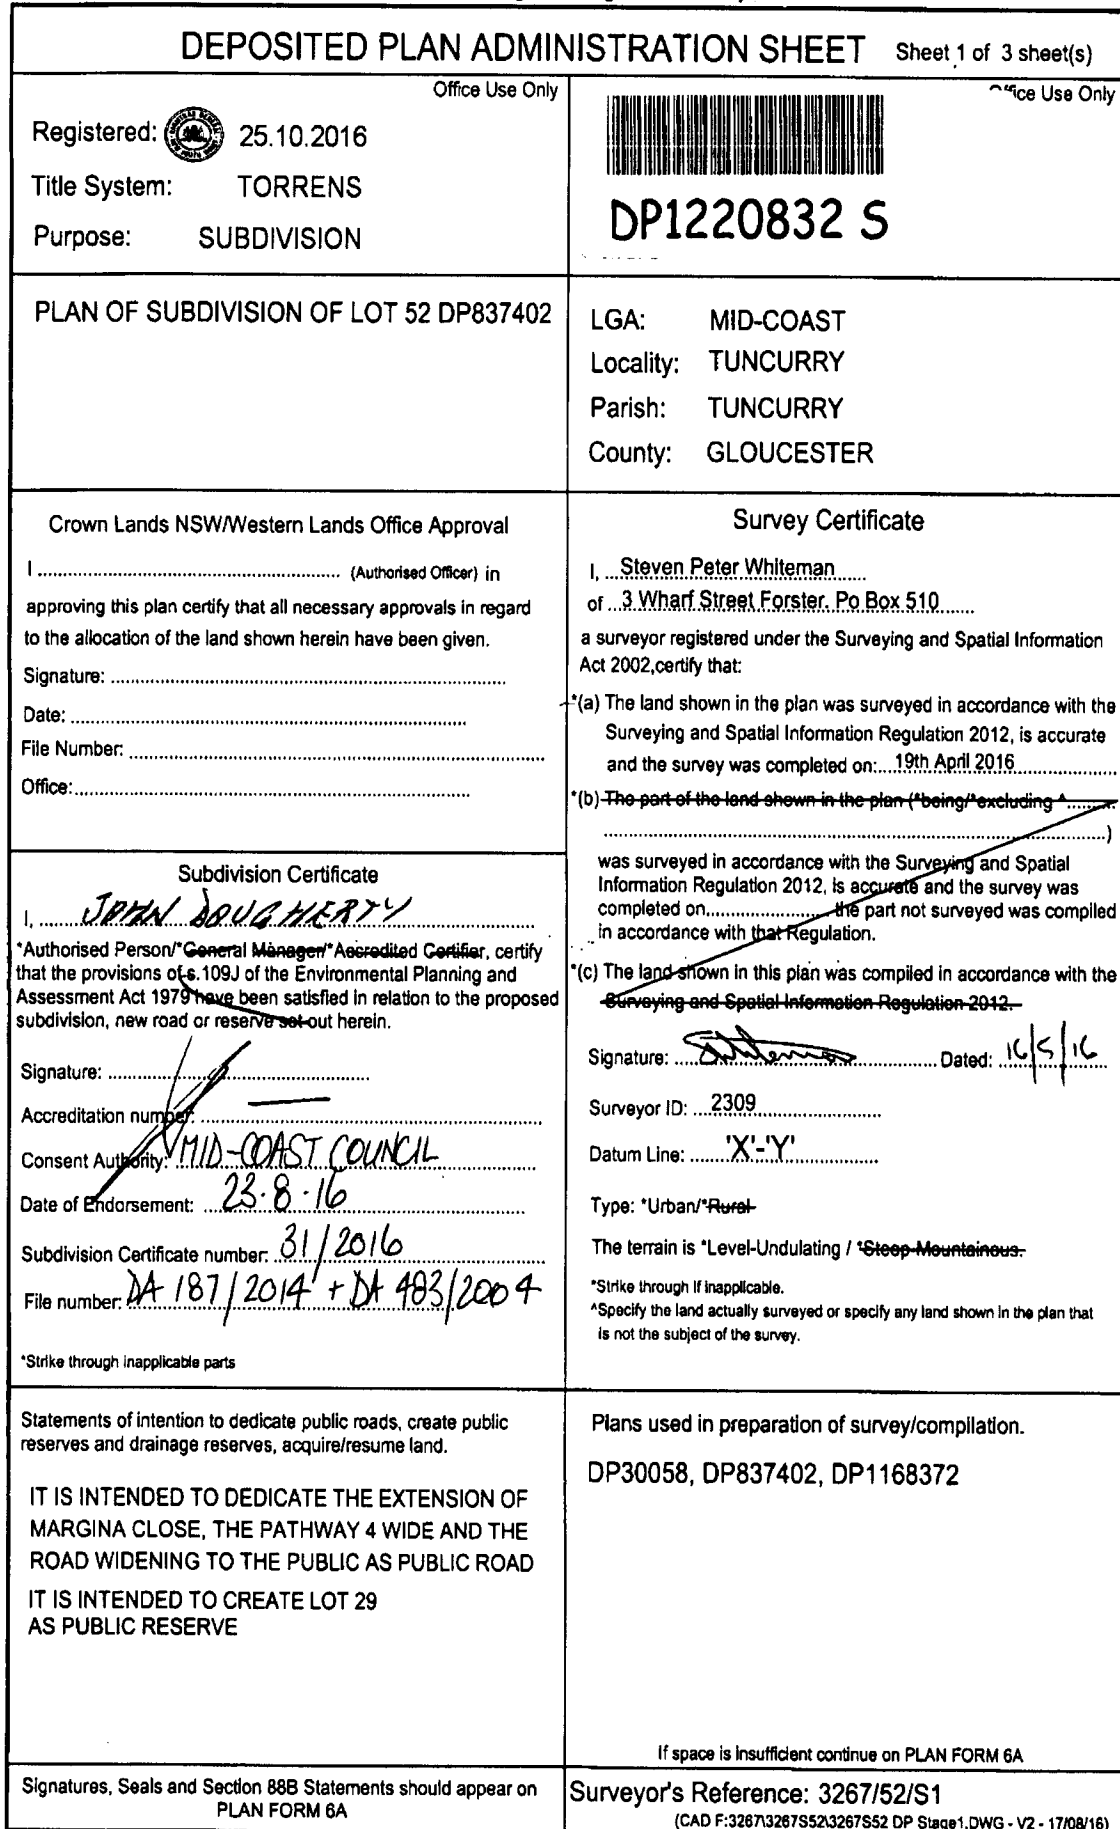 DEPOSITED PLAN ADMINISTRATION SHEET Sheet 1 of 3 sheet(s)
Office Use Only
Registered: 25.10.2016
Title System: TORRENS
Purpose: SUBDIVISION
Office Use Only
DP1220832 S
PLAN OF SUBDIVISION OF LOT 52 DP837402
LGA: MID-COAST
Locality: TUNCURRY
Parish: TUNCURRY
County: GLOUCESTER
Crown Lands NSW/Western Lands Office Approval
I ........................ (Authorised Officer) in
approving this plan certify that all necessary approvals in regard
to the allocation of the land shown herein have been given.
Signature: ........................
Date: ........................
File Number: ........................
Office: ........................
Subdivision Certificate
I, JOHN DOUGHERTY
*Authorised Person/*General Manager/*Accredited Certifier, certify
that the provisions of s.109J of the Environmental Planning and
Assessment Act 1979 have been satisfied in relation to the proposed
subdivision, new road or reserve set out herein.
Signature: ........................
Accreditation number: —
Consent Authority: MID-COAST COUNCIL
Date of Endorsement: 23.8.16
Subdivision Certificate number: 31/2016
File number: DA 187/2014 + DA 483/2004
*Strike through inapplicable parts
Survey Certificate
I, Steven Peter Whiteman
of 3 Wharf Street Forster. Po Box 510
a surveyor registered under the Surveying and Spatial Information
Act 2002,certify that:
*(a) The land shown in the plan was surveyed in accordance with the
Surveying and Spatial Information Regulation 2012, is accurate
and the survey was completed on: 19th April 2016
*(b) The part of the land shown in the plan (*being/*excluding ^........
........................)
was surveyed in accordance with the Surveying and Spatial
Information Regulation 2012, is accurate and the survey was
completed on........................the part not surveyed was compiled
in accordance with that Regulation.
*(c) The land shown in this plan was compiled in accordance with the
Surveying and Spatial Information Regulation 2012.
Signature: ........................ Dated: 16/5/16
Surveyor ID: 2309
Datum Line: 'X'-'Y'
Type: *Urban/*Rural
The terrain is *Level-Undulating / *Steep-Mountainous.
*Strike through if inapplicable.
^Specify the land actually surveyed or specify any land shown in the plan that
is not the subject of the survey.
Statements of intention to dedicate public roads, create public
reserves and drainage reserves, acquire/resume land.
IT IS INTENDED TO DEDICATE THE EXTENSION OF
MARGINA CLOSE, THE PATHWAY 4 WIDE AND THE
ROAD WIDENING TO THE PUBLIC AS PUBLIC ROAD
IT IS INTENDED TO CREATE LOT 29
AS PUBLIC RESERVE
Plans used in preparation of survey/compilation.
DP30058, DP837402, DP1168372
If space is insufficient continue on PLAN FORM 6A
Signatures, Seals and Section 88B Statements should appear on
PLAN FORM 6A
Surveyor's Reference: 3267/52/S1
(CAD F:3267\3267S52\3267S52 DP Stage1.DWG - V2 - 17/08/16)